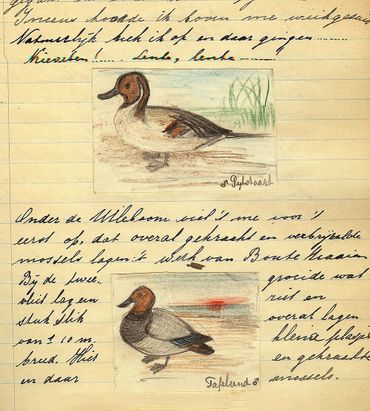 Ineens hoorde ik boven me
Natuurlijk keek ik op en daar gingen ........
Kieviten! ..... Lente, lente .......
♂ Pijlstaart
Onder de Uileboom viel 't me voor 't
eerst op, dat overal gekraakte en verbrijzelde
mossels lagen: 't werk van Bonte Kraaien
Bij de twee-
vliet lag een
stuk slik
van ± 10 m.
breed. Hier
en daar
groeide wat
riet en
overal lagen
kleine plasjes
en gekraakte
mossels.
Tafeleend ♂